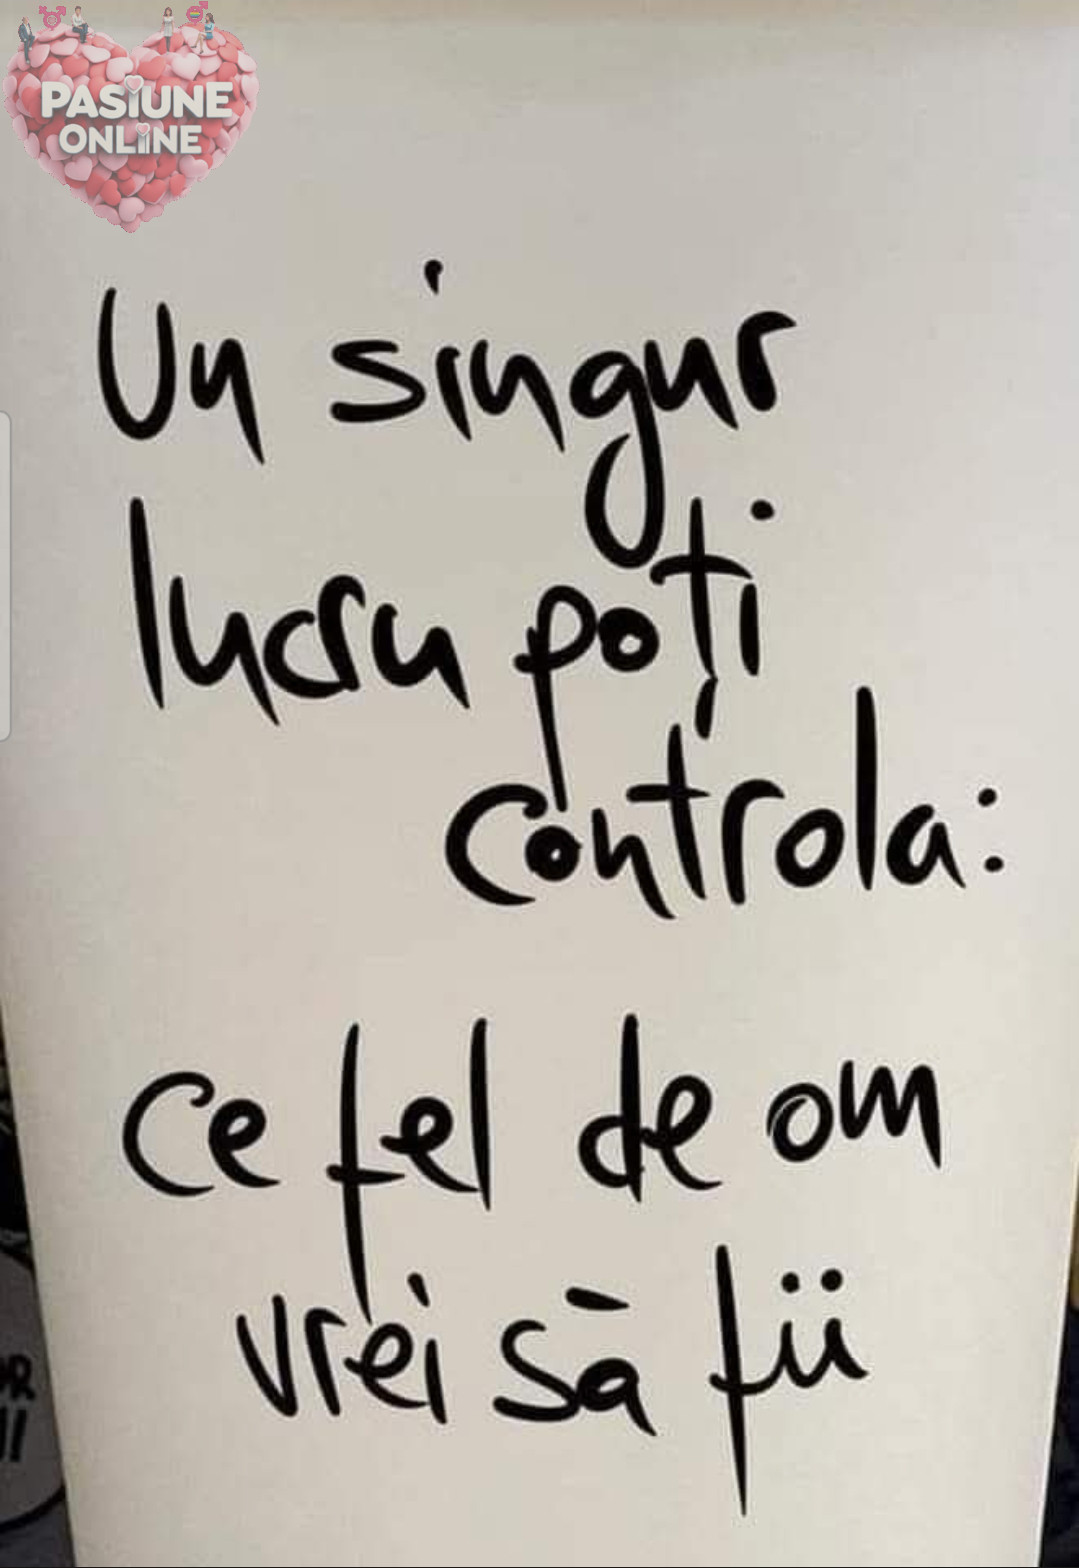 PASIUNE
ONLINE
Un singur
lucru poți
controla:
ce fel de om
vrei să fii